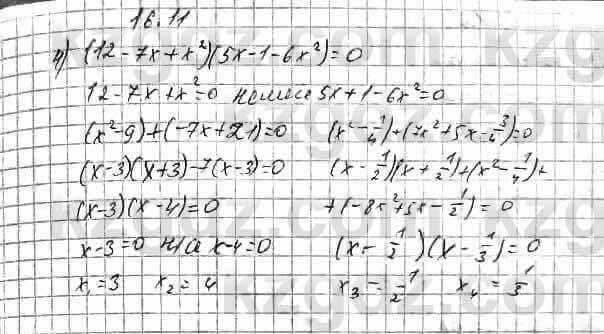 16.11
4) (12 - 7x + x²)(5x - 1 - 6x²) = 0
12 - 7x + x² = 0 немесе 5x + 1 - 6x² = 0
(x² - 9) + (-7x + 21) = 0 (x² - 1/4) + (7x² + 5x - 3/4) = 0
(x - 3)(x + 3) - 7(x - 3) = 0 (x - 1/2)(x + 1/2) + (x² - 1/4) +
(x - 3)(x - 4) = 0 + (-8x² + 5x - 1/2) = 0
x - 3 = 0 н/е x - 4 = 0 (x - 1/2)(x - 1/3) = 0
x₁ = 3 x₂ = 4 x₃ = 1/2 x₄ = 1/3
kzgdz.com